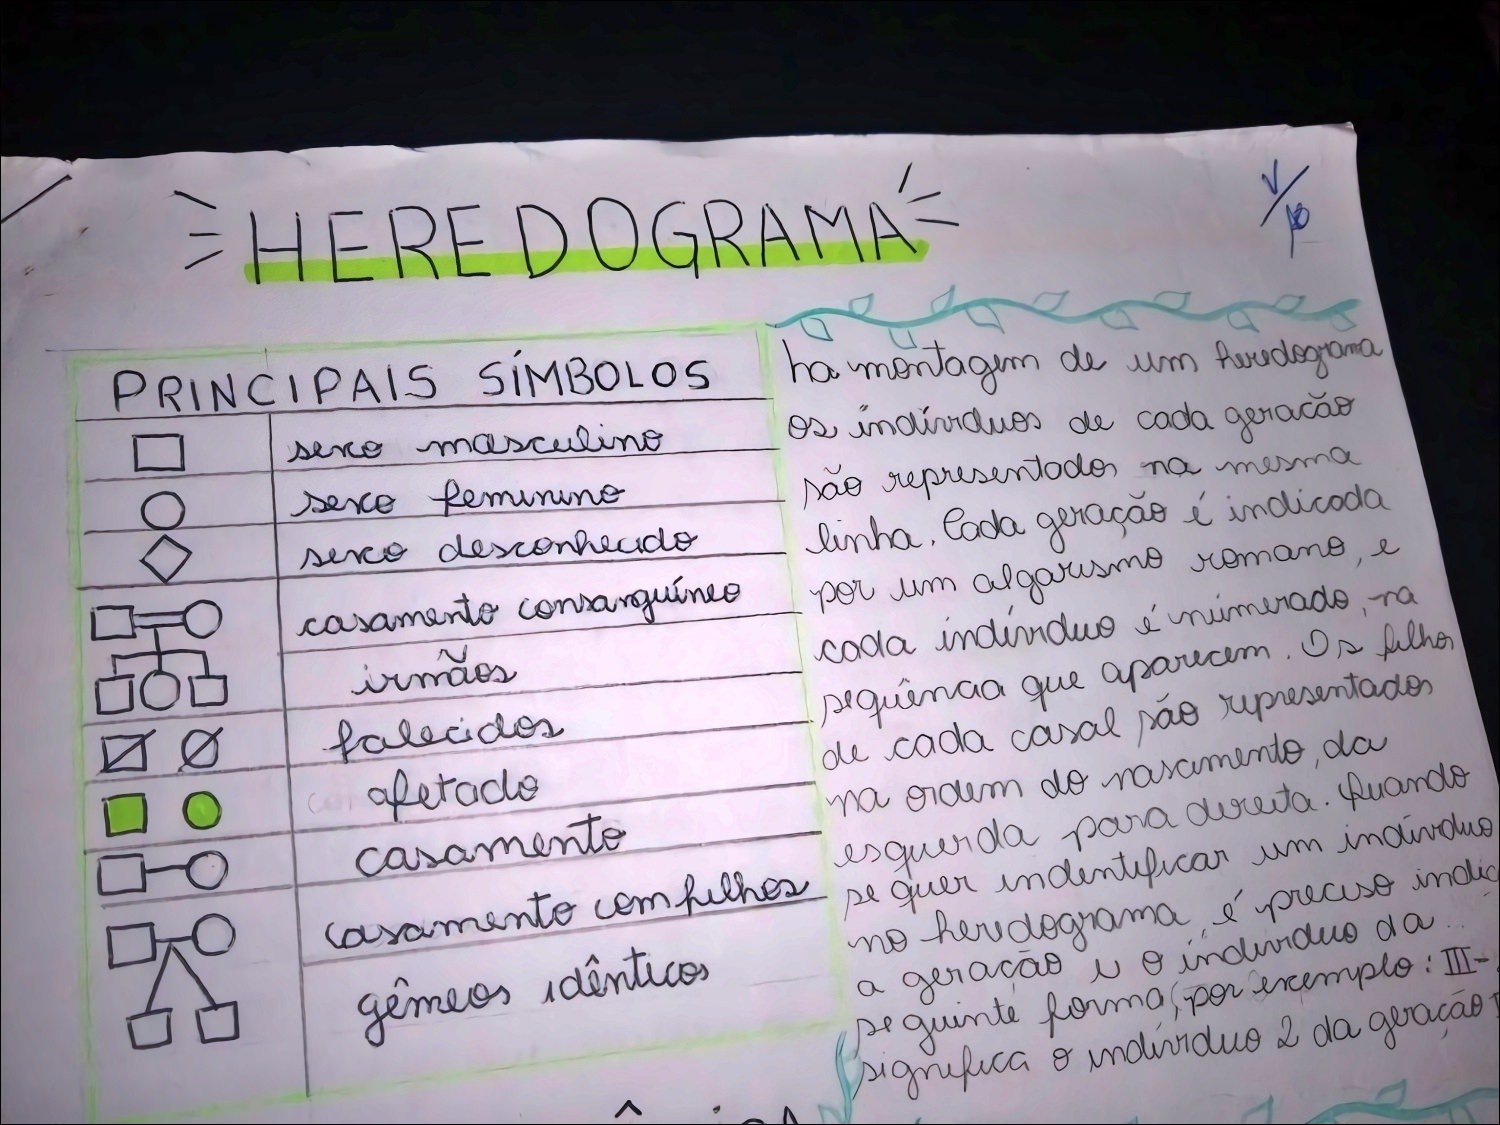 HEREDOGRAMA
PRINCIPAIS SÍMBOLOS
sexo masculino
sexo feminino
sexo desconhecido
casamento consanguíneo
irmãos
falecidos
afetado
casamento
casamento com filhos
gêmeos idênticos
na montagem de um heredograma
os indivíduos de cada geracão
são representados na mesma
linha. Cada geração é indicada
por um algarismo romano, e
cada indivíduo é númerado, na
seqüência que aparecem. Os filhos
de cada casal são representados
na ordem do nascimento, da
esquerda para direita. Quando
se quer indentificar um indivíduo
no heredograma, é preciso indic
a geração e o indivíduo da
seguinte forma, por exemplo: III-
significa o indivíduo 2 da geração